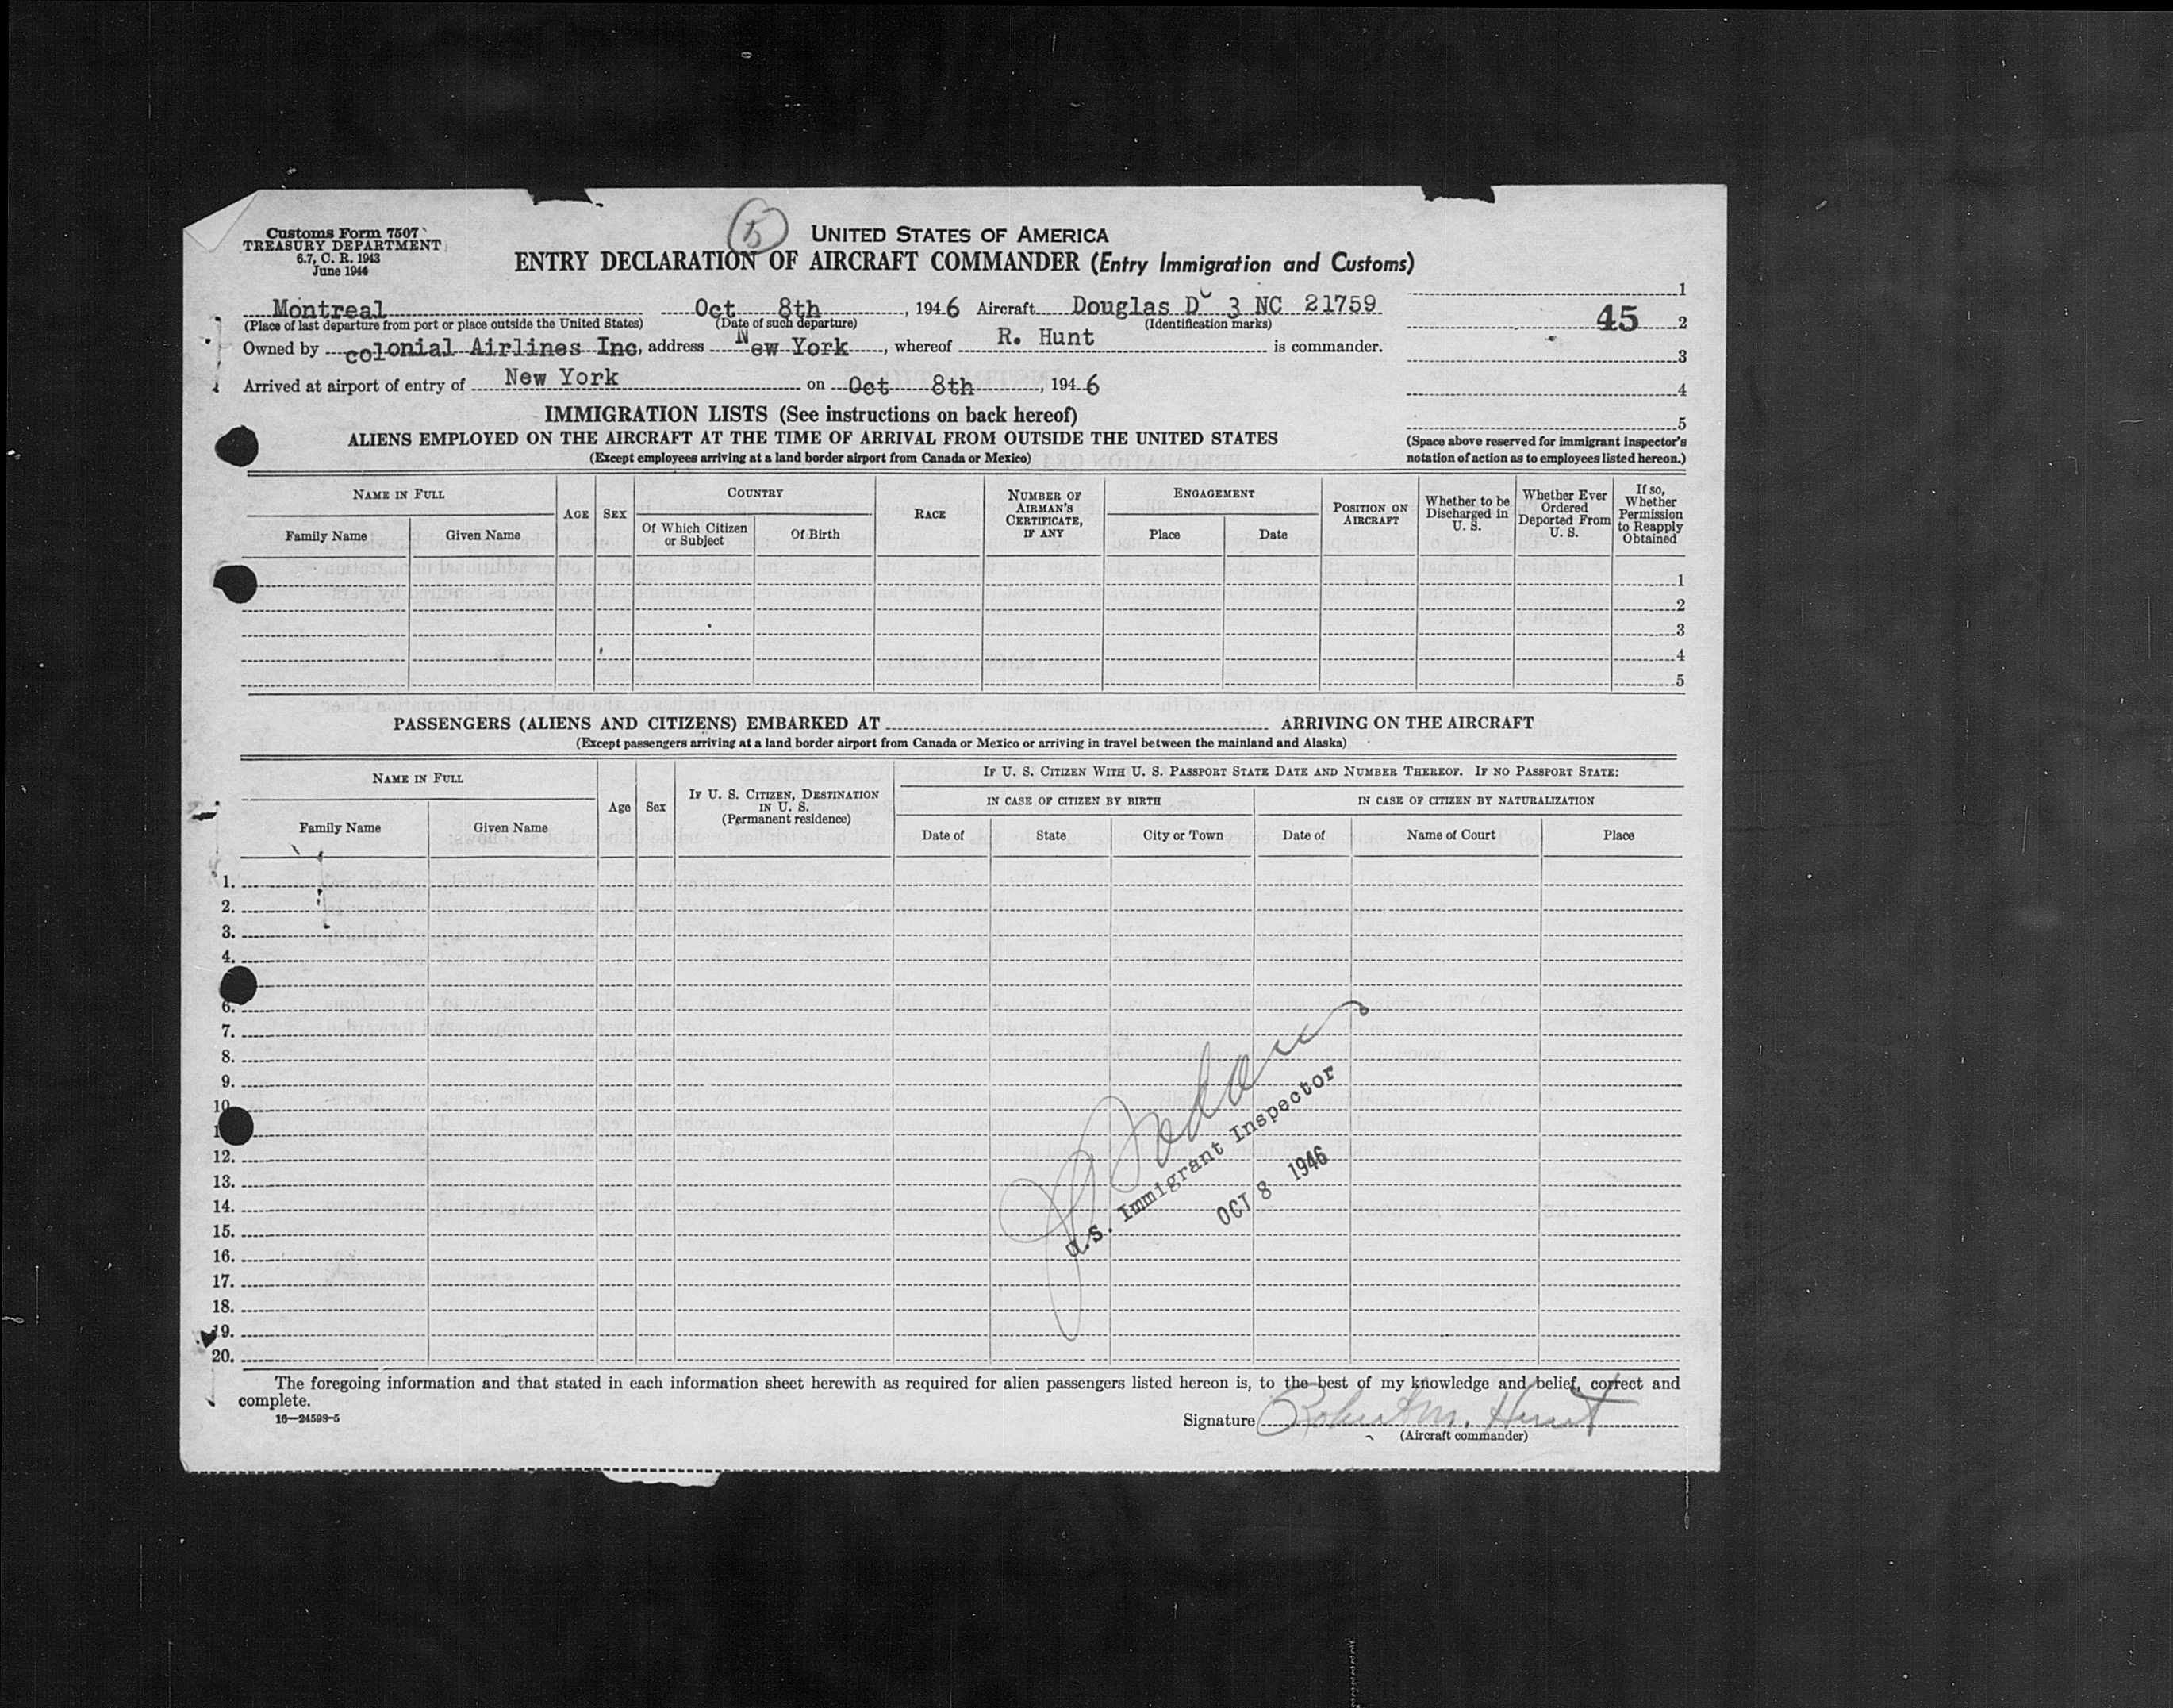 Customs Form 7507
TREASURY DEPARTMENT
6.7, C. R. 1943
June 1944
5
UNITED STATES OF AMERICA
ENTRY DECLARATION OF AIRCRAFT COMMANDER (Entry Immigration and Customs)
Montreal Oct 8th, 1946 Aircraft Douglas DC 3 NC 21759
(Place of last departure from port or place outside the United States) (Date of such departure) (Identification marks)
Owned by colonial Airlines Inc, address New York, whereof R. Hunt is commander.
Arrived at airport of entry of New York on Oct 8th, 1946
1
45 2
3
4
5
(Space above reserved for immigrant inspector's
notation of action as to employees listed hereon.)
IMMIGRATION LISTS (See instructions on back hereof)
ALIENS EMPLOYED ON THE AIRCRAFT AT THE TIME OF ARRIVAL FROM OUTSIDE THE UNITED STATES
(Except employees arriving at a land border airport from Canada or Mexico)
NAME IN FULL
Family Name
Given Name
AGE
SEX
COUNTRY
Of Which Citizen
or Subject
Of Birth
RACE
NUMBER OF
AIRMAN'S
CERTIFICATE,
IF ANY
ENGAGEMENT
Place
Date
POSITION ON
AIRCRAFT
Whether to be
Discharged in
U. S.
Whether Ever
Ordered
Deported From
U. S.
If so,
Whether
Permission
to Reapply
Obtained
1
2
3
4
5
PASSENGERS (ALIENS AND CITIZENS) EMBARKED AT ARRIVING ON THE AIRCRAFT
(Except passengers arriving at a land border airport from Canada or Mexico or arriving in travel between the mainland and Alaska)
NAME IN FULL
Family Name
Given Name
Age
Sex
IF U. S. CITIZEN, DESTINATION
IN U. S.
(Permanent residence)
IF U. S. CITIZEN WITH U. S. PASSPORT STATE DATE AND NUMBER THEREOF. IF NO PASSPORT STATE:
IN CASE OF CITIZEN BY BIRTH
Date of
State
City or Town
IN CASE OF CITIZEN BY NATURALIZATION
Date of
Name of Court
Place
1.
2.
3.
4.
6.
7.
8.
9.
10
1
12.
13.
14.
15.
16.
17.
18.
19.
20.
U.S. Immigrant Inspector
OCT 8 1946
The foregoing information and that stated in each information sheet herewith as required for alien passengers listed hereon is, to the best of my knowledge and belief, correct and
complete.
16—24598-5
Signature Robert M. Hunt
(Aircraft commander)